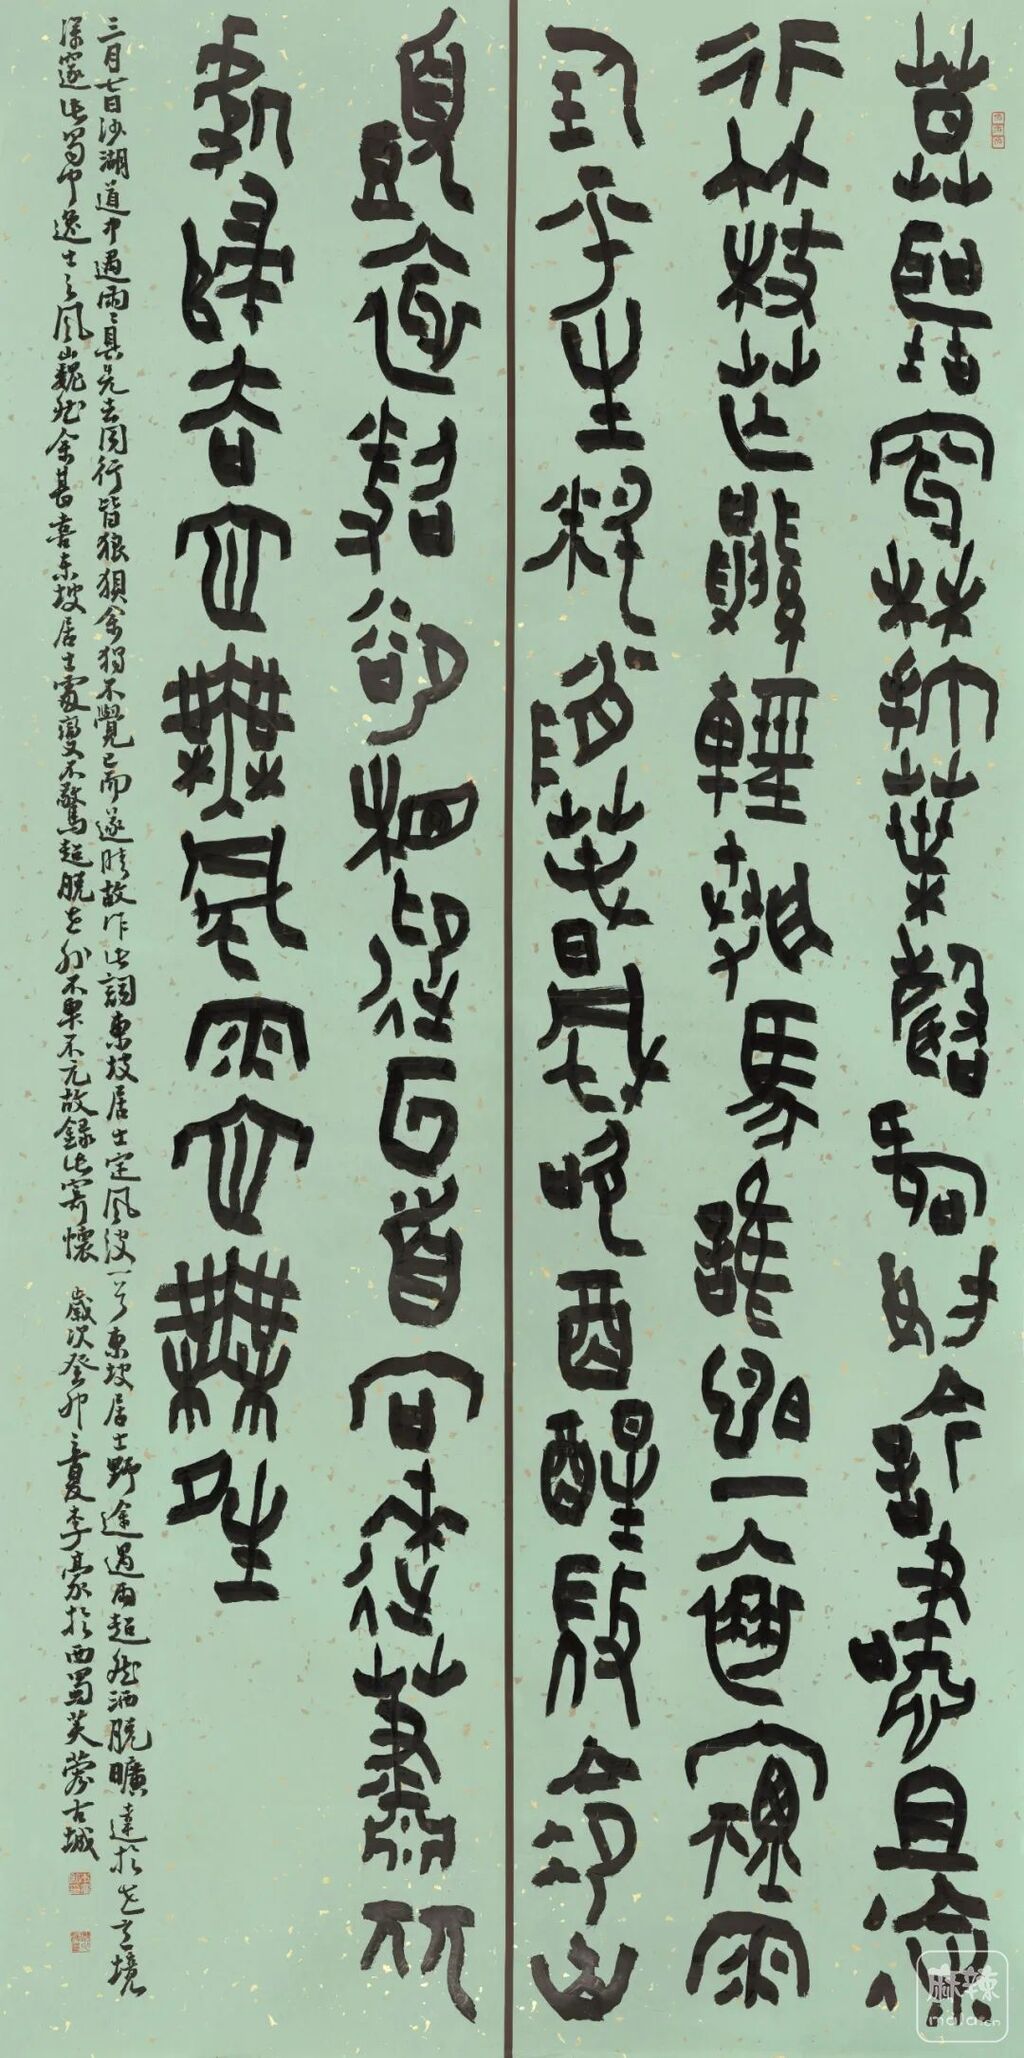 莫聽穿林打葉聲何妨吟嘯且徐
行竹杖芒鞋輕勝馬誰怕一蓑煙雨
任平生料峭春風吹酒醒微冷山
頭斜照卻相迎回首向來蕭瑟
處歸去也無風雨也無晴
三月七日沙湖道中遇雨雨具先去同行皆狼狽余獨不覺已而遂晴故作此詞東坡居士定風波一首東坡居士野途遇雨超然洒脫曠達於世其境
深邃此蜀中逸士之風巍然余甚喜東坡居士處變不驚超脫世外不卑不亢故錄此寄懷 歲次癸卯夏李豪於西蜀芙蓉古城
麻辣
mala.cn